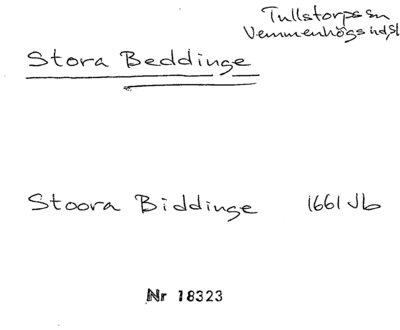 Tullstorps sn
Vemmenhögs hd, Sk
Stora Beddinge
Stoora Biddinge 1661 Jb
Nr 18323